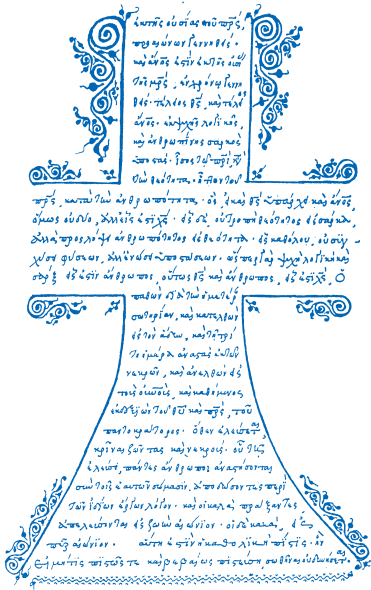 ἐκ τῆς οὐσίας τοῦ πρς,
πρὸ αἰώνων γεννηθείς·
καὶ ἄνος ἐστὶν ἐκ τῆς οὐσί
τῆς μρς, ἐν χρόνῳ γεννη
θείς· τέλειος θς, καὶ τέλει
ἄνος· ἐκ ψυχῆς λογικῆς
καὶ ἀνθρωπίνης σαρκὸς
ὑποστάς· ἴσος τῷ πρὶ κ
τὴν θεότητα· ἐλάττων τοῦ
πρς, κατὰ τὴν ἀνθρωπότητα· ὃς, εἰ καὶ θς ὑπάρχει καὶ ἄνος,
ὅμως οὐ δύο, ἀλλ' εἷς ἐστὶ χς· εἷς δὲ, οὐ τροπῇ θεότητος εἰς σάρκα,
ἀλλὰ προσλήψει ἀνθρωπότητος εἰς θεότητα· εἷς καθόλου, οὐ συγ-
χύσει φύσεων, ἀλλ' ἑνώσει ὑποστάσεων· ὥσπερ γὰρ ψυχὴ λογικὴ καὶ
σὰρξ εἷς ἐστὶν ἄνθρωπος, οὕτως θς καὶ ἄνθρωπος, εἷς ἐστὶ χς, Ὁ
παθὼν διὰ τὴν ἡμετέρ
σωτηρίαν, καὶ κατελθὼν
εἰς τὸν ἅδην, καὶ τῇ τρί
τῃ ἡμέρᾳ ἀναστὰς ἐκ τῶν
νεκρῶν, καὶ ἀνελθὼν εἰς
τοὺς οὐνοὺς, καὶ καθήμενος
ἐκ δεξιῶν τοῦ θυ καὶ πρς, τοῦ
παντοκράτορος· Ὅθεν ἐλεύσεται
κρῖναι ζῶντας καὶ νεκρούς· οὗ τῇ
ἐλεύσει, πάντες ἄνθρωποι ἀναστήσονται
σὺν τοῖς ἑαυτῶν σώμασιν, ἀποδώσοντες περὶ
τῶν ἰδίων ἔργων λόγον· καὶ οἱ καλὰ πράξαντες
ἀπελεύσονται εἰς ζωὴν αἰώνιον· οἱ δὲ κακὰ, εἰς
πῦρ αἰώνιον. αὕτη ἐστὶν ἡ καθολικὴ πίστις· ἣν
εἰ μή τις πιστῶς τε καὶ βεβαίως πιστεύσῃ, σωθῆναι οὐ δυνήσεται.